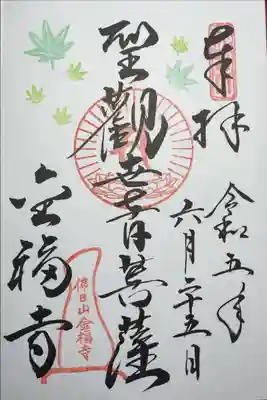 奉拝
令和五年
六月二十五日
聖観世音菩薩
金福寺
佛日山金福寺